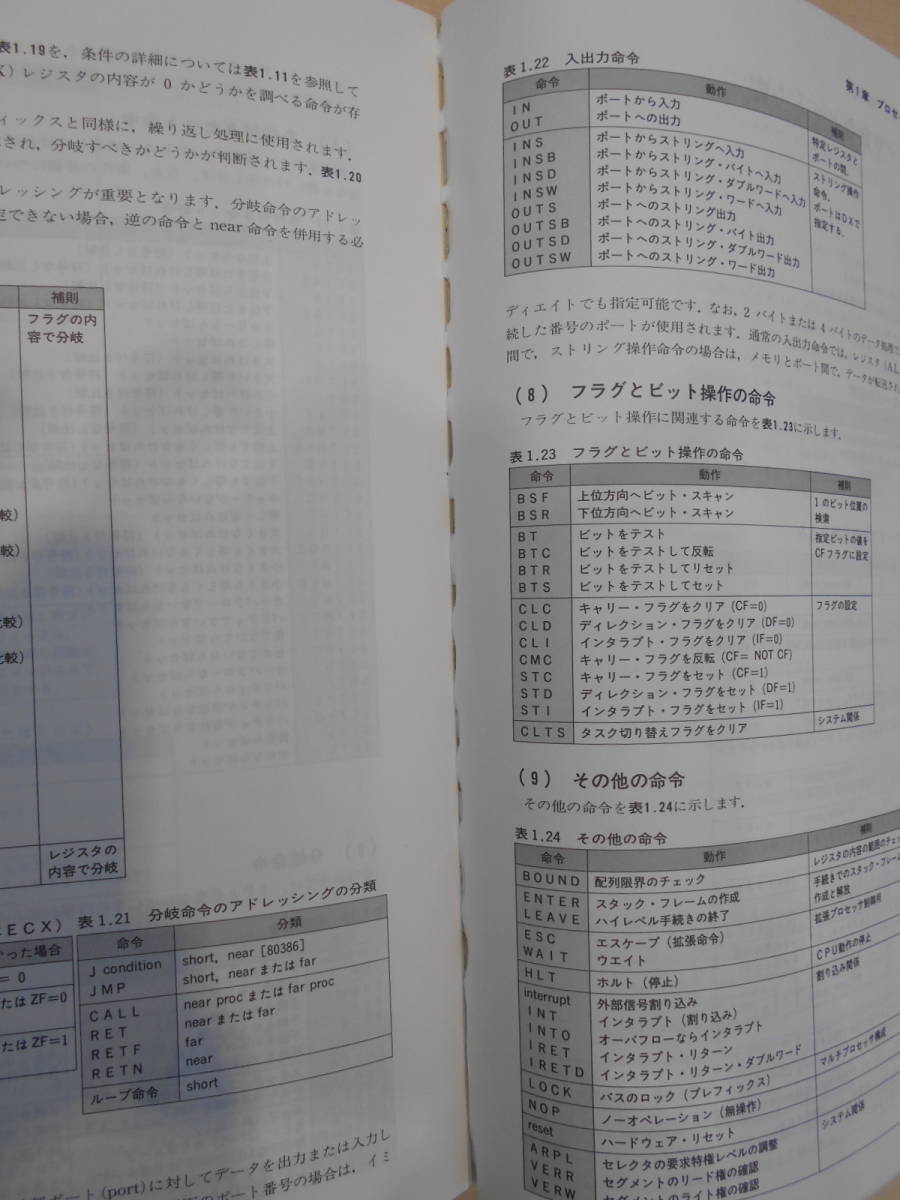 表1.19を，条件の詳細については表1.11を参照して
X）レジスタの内容が 0 かどうかを調べる命令が存
ィックスと同様に，繰り返し処理に使用されます．
され，分岐すべきかどうかが判断されます．表1.20
レッシングが重要となります．分岐命令のアドレッ
定できない場合，逆の命令と near 命令を併用する必
補則
フラグの内
容で分岐
較）
較）
比較）
比較）
レジスタの
内容で分岐
ECX）
かった場合
= 0
またはZF=0
またはZF=1
表1.21 分岐命令のアドレッシングの分類
命令 分類
J condition short, near [80386]
JMP short, near または far
CALL near proc または far proc
RET near または far
RETF far
RETN near
ループ命令 short
ポート(port)に対してデータを出力または入力し
のポート番号の場合は，イミ
第1章 プロセ
表1.22 入出力命令
命令 動作 補則
IN ポートから入力 特定レジスタと
OUT ポートへの出力 ポートの間．
INS ポートからストリングへ入力 ストリング操作
INSB ポートからストリング・バイトへ入力 命令．
INSD ポートからストリング・ダブルワードへ入力 ポートはDXで
INSW ポートからストリング・ワードへ入力 指定する．
OUTS ポートへのストリング出力
OUTSB ポートへのストリング・バイト出力
OUTSD ポートへのストリング・ダブルワード出力
OUTSW ポートへのストリング・ワード出力
ディエイトでも指定可能です．なお，2 バイトまたは 4 バイトのデータ処理で
続した番号のポートが使用されます．通常の入出力命令では，レジスタ（AL
間で，ストリング操作命令の場合は，メモリとポート間で，データが転送され
（8） フラグとビット操作の命令
フラグとビット操作に関連する命令を表1.23に示します．
表1.23 フラグとビット操作の命令
命令 動作 補則
BSF 上位方向へビット・スキャン 1のビット位置の
BSR 下位方向へビット・スキャン 検索
BT ビットをテスト 指定ビットの値を
BTC ビットをテストして反転 CFフラグに設定
BTR ビットをテストしてリセット
BTS ビットをテストしてセット
CLC キャリー・フラグをクリア (CF=0) フラグの設定
CLD ディレクション・フラグをクリア (DF=0)
CLI インタラプト・フラグをクリア (IF=0)
CMC キャリー・フラグを反転 (CF= NOT CF)
STC キャリー・フラグをセット (CF=1)
STD ディレクション・フラグをセット (DF=1)
STI インタラプト・フラグをセット (IF=1)
CLTS タスク切り替えフラグをクリア システム関係
（9） その他の命令
その他の命令を表1.24に示します．
表1.24 その他の命令
命令 動作 補則
BOUND 配列限界のチェック レジスタの内容の範囲のチェッ
ENTER スタック・フレームの作成 手続きでのスタック・フレーム
LEAVE ハイレベル手続きの終了 作成と解放
ESC エスケープ（拡張命令） 拡張プロセッサ制御用
WAIT ウエイト
HLT ホルト（停止） CPU動作の停止
interrupt 外部信号割り込み 割り込み関係
INT インタラプト（割り込み）
INTO オーバフローならインタラプト
IRET インタラプト・リターン
IRETD インタラプト・リターン・ダブルワード
LOCK バスのロック（プレフィックス） マルチプロセッサ構成
NOP ノーオペレーション（無操作）
reset ハードウェア・リセット システム関係
ARPL セレクタの要求特権レベルの調整
VERR セグメントのリード権の確認
VERW セグメントのライト権の確認